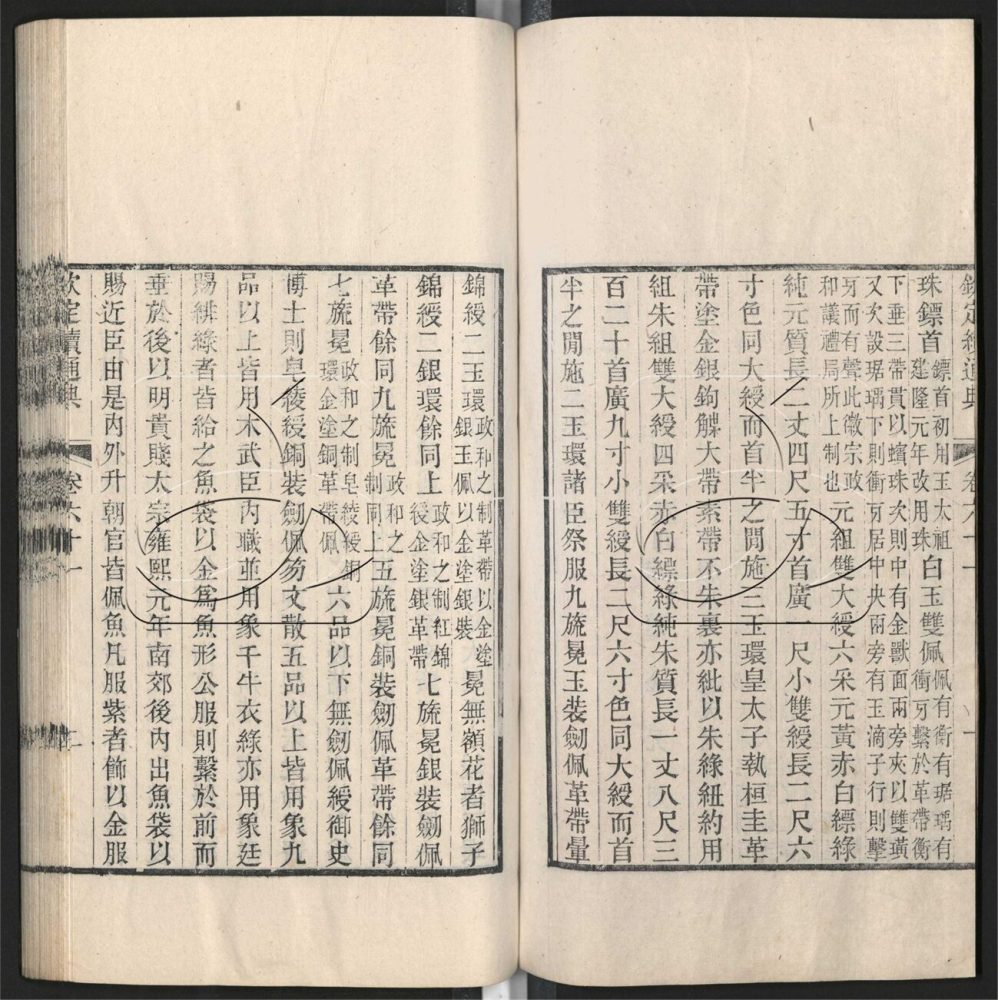 欽定續通典 卷六十一 一
珠鏢首鏢首初用玉太祖建隆元年改用珠白玉雙佩佩有衡有琚瑀有衝牙繫於革帶衡
下垂三帶貫以蠙珠次則中有金獸面兩旁夾以雙璜
又次設琚瑀下則衝牙居中央兩旁有玉滴子行則擊
牙而有聲此徽宗政和議禮局所上制也元組雙大綬六采元黃赤白縹綠
純元質長二丈四尺五寸首廣一尺小雙綬長二尺六
寸色同大綬而首半之閒施三玉環皇太子執桓圭革
帶塗金銀鉤䚢大帶素帶不朱裏亦紕以朱綠紐約用
組朱組雙大綬四采赤白縹綠純朱質長一丈八尺三
百二十首廣九寸小雙綬長二尺六寸色同大綬而首
半之閒施二玉環諸臣祭服九旒冕玉裝劒佩革帶暈
錦綬二玉環政和之制革帶以金塗銀玉佩以金塗銀裝冕無額花者獅子
錦綬二銀環餘同上政和之制紅錦綬金塗銀革帶七旒冕銀裝劒佩
革帶餘同九旒冕政和之制同上五旒冕銅裝劒佩革帶餘同
七旒冕政和之制皂綾綬銅環金塗銅革帶佩六品以下無劒佩綬御史
博士則皂綾綬銅裝劒佩笏文散五品以上皆用象九
品以上皆用木武臣內職並用象千牛衣綠亦用象廷
賜緋綠者皆給之魚袋以金爲魚形公服則繫於前而
垂於後以明貴賤太宗雍熙元年南郊後內出魚袋以
賜近臣由是內外升朝官皆佩魚凡服紫者飾以金服
欽定續通典 卷六十一 二